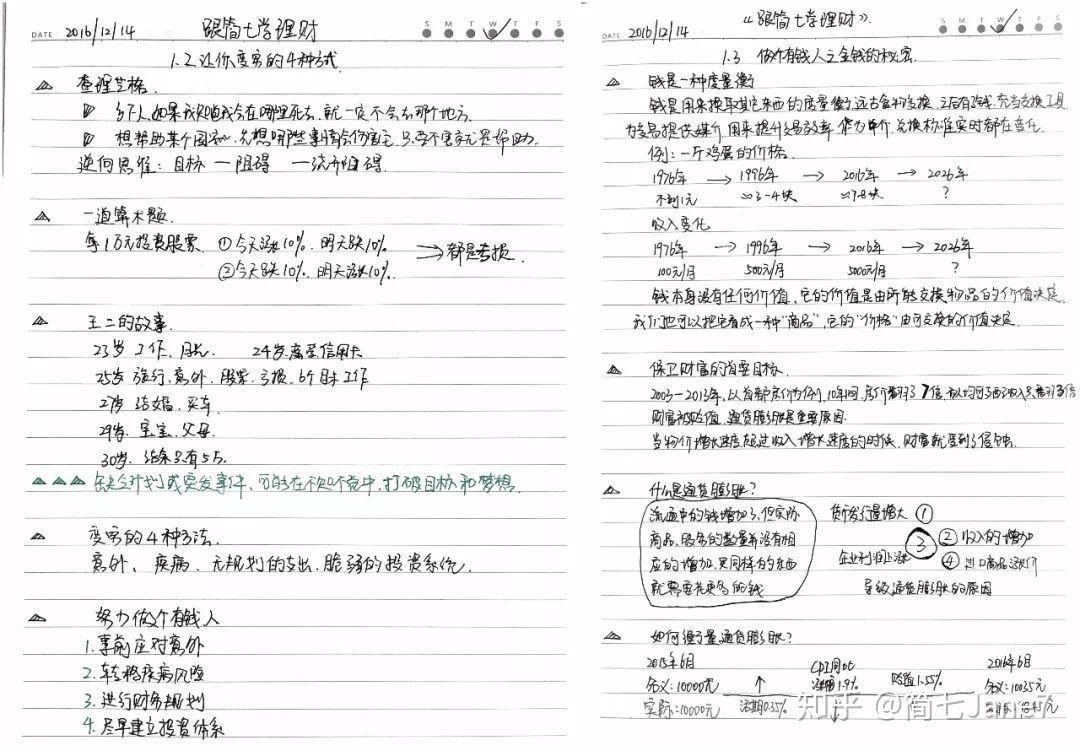 DATE 2016/12/14 跟简七学理财 S M T W T F S
1.2 让你变穷的4种方式
查理芒格
乡下人,如果我知道我会在哪里死去,就一定不会去那个地方.
想帮助某个国家,先想哪些事情会伤害它,只要不害它就是帮助.
逆向思维:目标—阻碍 —绕开阻碍
一道算术题.
每1万元投资股票 ①今天涨10%.明天跌10%.
②今天跌10%.明天涨10%. → 都是亏损.
王二的故事.
23岁 工作、月光 24岁 信用卡
25岁 旅行、意外、股票、亏损、6个月未工作
27岁 结婚、买车
29岁、宝宝、父母
30岁、结余只有5万
缺乏计划或突发事件、可能在不知不觉中,打破目标和梦想.
变穷的4种方法.
意外、疾病、无规划的支出、脆弱的投资系统.
努力做个有钱人
1.事前应对意外
2.转移疾病风险
3.进行财务规划
4.尽早建立投资体系
DATE 2016/12/14 《跟简七学理财》. S M T W T F S
1.3 做个有钱人之金钱的秘密.
钱是一种度量衡
钱是用来换取其它东西的度量衡,远古食物交换,之后有钱,充当交换工具
为交易提供媒介 用来提升交易效率 作为单价、兑换标准实时都在变化.
例:一斤鸡蛋的价格.
1976年 → 1996年 → 2016年 → 2026年
不到1元 ≈3-4块 ≈7-8块 ?
收入变化
1976年 → 1996年 → 2016年 → 2026年
100元/月 500元/月 5000元/月 ?
钱本身没有任何价值,它的价值是由所能交换物品的价值决定.
我们也可以把它看成一种"商品",它的"价格"由可交换的价值决定.
保卫财富的首要目标.
2003—2013年,以首都房价为例,10年间,房价翻了7倍,
财富被贬值,通货膨胀是重要原因.
当物价增长速度超过收入增长速度的时候,财富就受到了侵蚀.
什么是通货膨胀?
流通中的钱增加了,但实际
商品、服务的数量并没有相
应的增加,买同样的东西
就需要花更多的钱
货币发行量增大 ①
②收入的增加
企业利润上涨 ③
④进口商品涨价
导致通货膨胀的原因
如何衡量通货膨胀?
2015年6月 CPI同比 2016年6月
名义:10000元 ↑ 涨幅1.9% 贬值1.55% 名义:10035元
实际:10000元 活期0.35% ↓
知乎 @简七Jane7